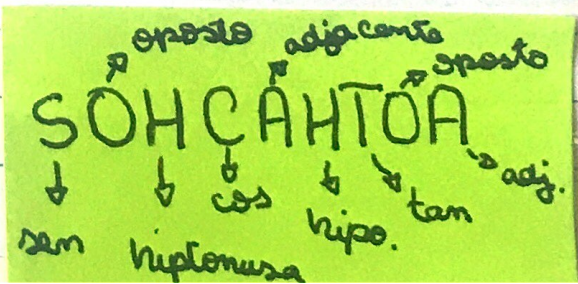 oposto adjacente oposto
SOHCAHTOA
sen hiptonusa cos hipo. tan adj.